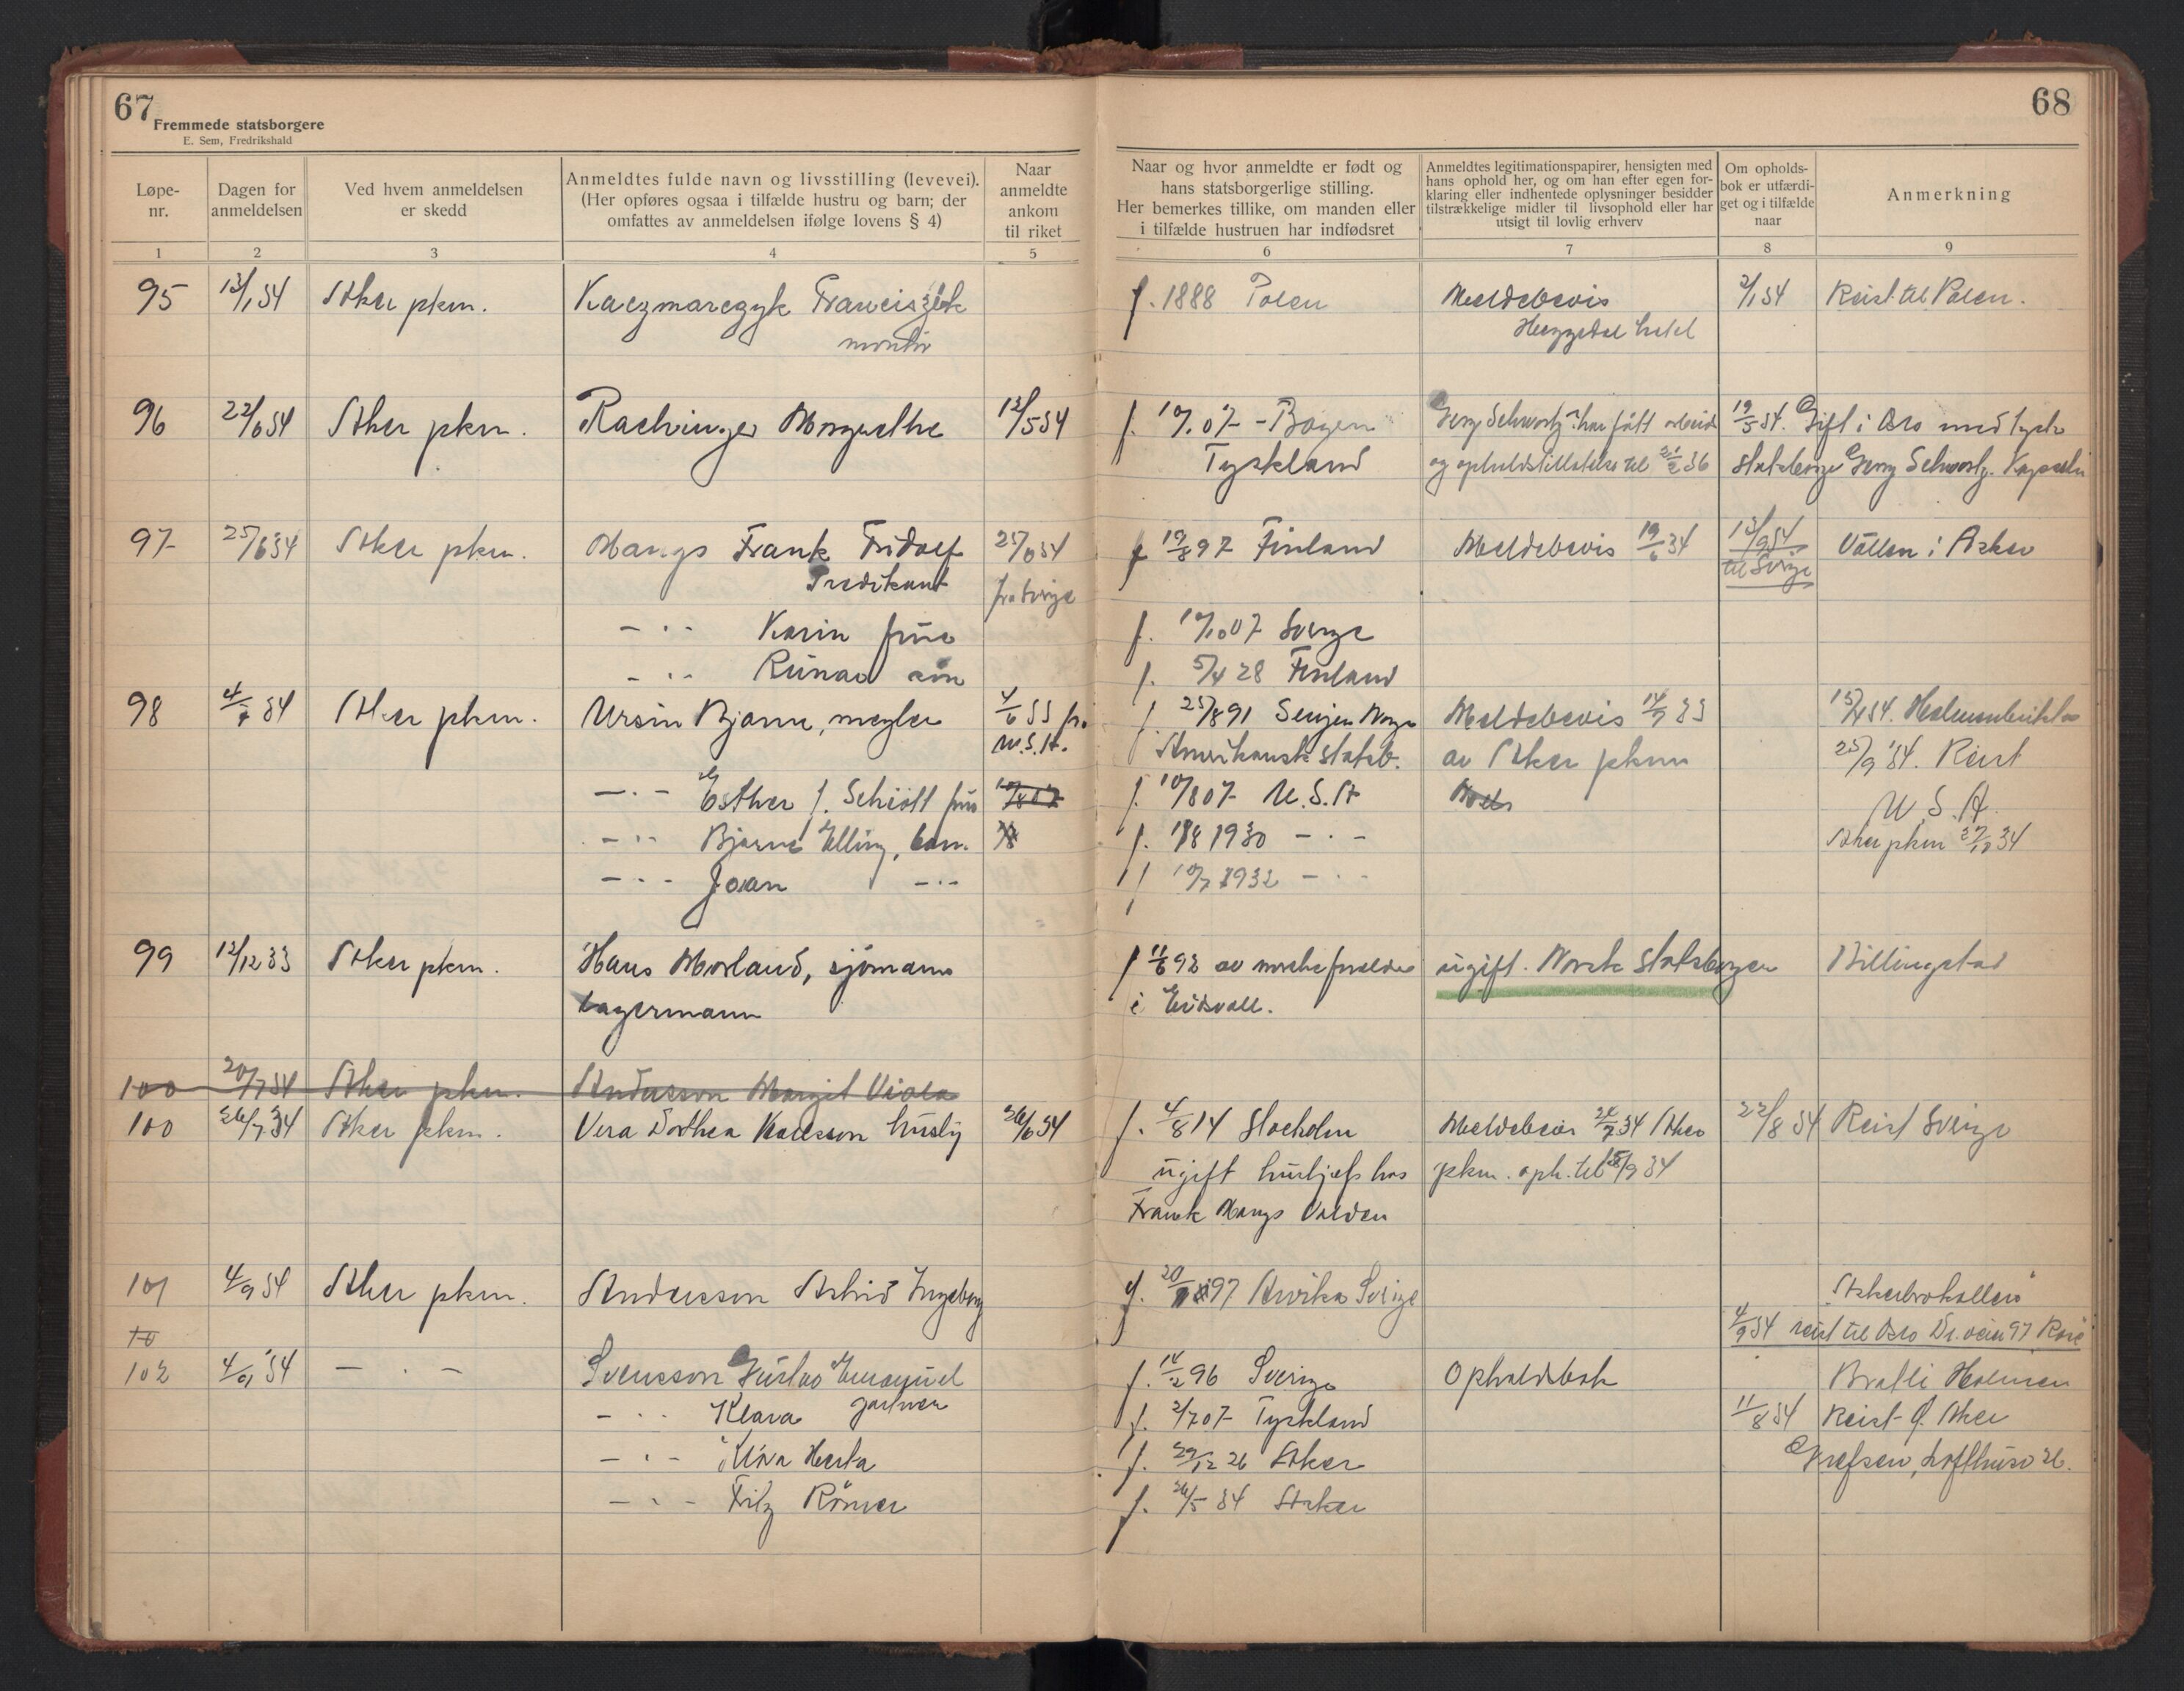 67
Fremmede statsborgere
E. Sem, Fredrikshald
68
Løpe-
nr.
Dagen for
anmeldelsen
Ved hvem anmeldelsen
er skedd
Anmeldtes fulde navn og livsstilling (levevei).
(Her opføres ogsaa i tilfælde hustru og barn; der
omfattes av anmeldelsen ifølge lovens § 4)
Naar
anmeldte
ankom
til riket
Naar og hvor anmeldte er født og
hans statsborgerlige stilling.
Her bemerkes tillike, om manden eller
i tilfælde hustruen har indfødsret
Anmeldtes legitimationspapirer, hensigten med
hans ophold her, og om han efter egen for-
klaring eller indhentede oplysninger besidder
tilstrækkelige midler til livsophold eller har
utsigt til lovlig erhverv
Om opholds-
bok er utfærdi-
get og i tilfælde
naar
Anmerkning
1 2 3 4 5 6 7 8 9
95 13/1 34 Aker pkm. Kaczmarczyk Franciszek f. 1888 Polen Meldebevis 2/1 34 Reist til Polen.
montør Heggedal hotel
96 22/6 34 Aker pkm. Rachinger Margrethe 12/5 34 f. 07 - Bayern har fått arbeid 19/5 34. Gift i Oslo med tysk
Tyskland og opholdstillatelse til 36 statsborger Schwartz.
97 25/6 34 Aker pkm. Mangs Frank Fridolf 25/6 34 f 19/8 97 Finland Meldebevis 19/6 34 13/9 34 Vollen i Asker
Predikant fra Sverge til Sverge
— · - Karin frue f. 07 Sverge
- · · Runar søn f. 5/4 28 Finland
98 34 Aker pkm. Ursin Bjarne, megler 33 fra f 25/8 91 Senjen Norge Meldebevis 33 34.
U.S.A. Amerikansk statsb. av Aker pkm 25/9 34. Reist
— · - Esther f. Schiøtt frue f. 10/8 07 U.S.A U.S.A.
- · · Bjarne Elling, barn. f. 1930 — · - Aker pkm 34
— · - Joan — · - f 1932 — · -
99 12/12 33 Aker pkm. Hans Morland, sjømann f 11/6 93 av norske foreldre ugift. Norsk statsborger Billingstad
Lagermann i Eidsvoll.
100 20/7 34 Aker pkm. Andersson Margit Viola
100 26/7 34 Aker pkm. Vera Dorthea Karlsson husly 26/6 34 f. 4/8 14 Stocholm Meldebevis 34 Aker 22/8 34 Reist Sverge
ugift hushjelp hos pkm. oph. til 34
Frank Mangs Valden
101 4/9 34 Aker pkm. Andersson Astrid Ingeborg f. 20/ 97 Arvika Sverge
4/9 34 reist til Oslo
10
102 4/9 34 — · — Svensson Gustav Emanuel f. 14/2 96 Sverige Opholdsbok Holmen
gartner
— · · Klara f. 2/7 07 Tyskland 11/8 34 Reist Ø. Aker
— · - Herta f. 29/12 26 Aker Grefsen, Lofthusv 26.
— · - Fritz f. 26/5 34 Asker